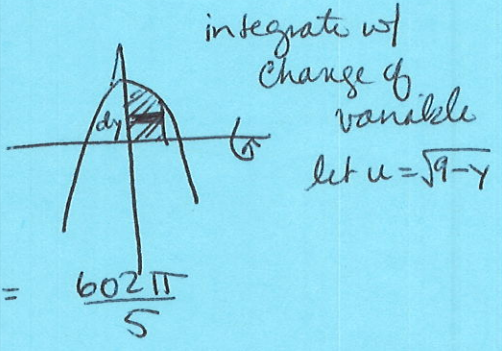 integrate w/
change of
variable
let u = √9-y
dy
= 602π
5